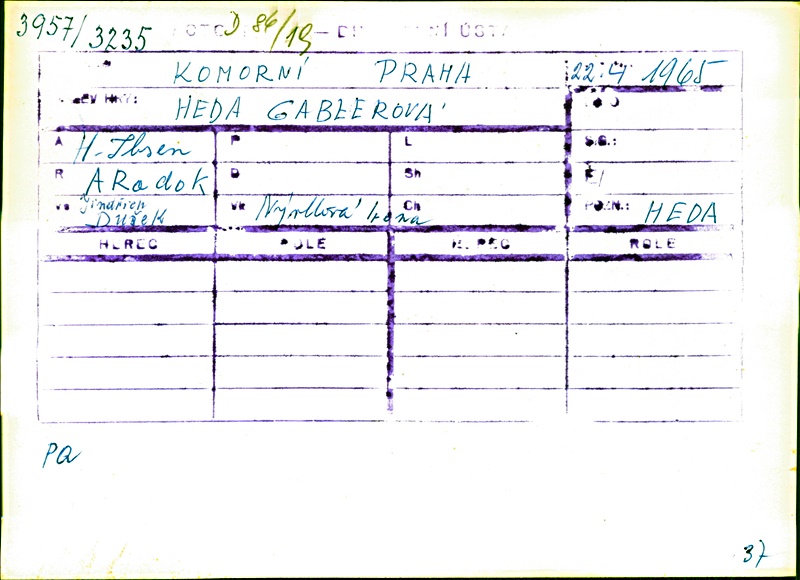 3957/3235 D 86/19
KOMORNÍ PRAHA 22.4 1965
HEDA GABLEROVÁ
A H. Ibsen P L
R A Radok D Sh
Vs Jindřich Dušek Vk Nývltová Irena Ch POZN.: HEDA
HEREC ROLE HEREC ROLE
Pa
37